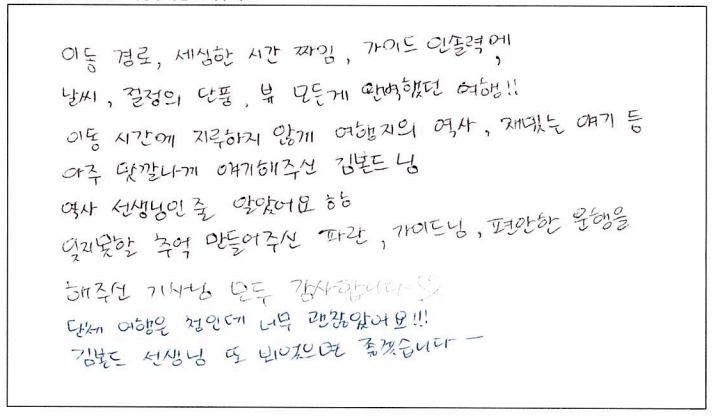 이동 경로, 세심한 시간 짜임, 가이드 인솔력에,
날씨, 절정의 단풍, 뷰 모든게 완벽했던 여행!!
이동 시간에 지루하지 않게 여행지의 역사, 재밌는 얘기 등
아주 맛깔나게 얘기해주신 김본드님
역사 선생님인 줄 알았어요 ㅎㅎ
잊지못할 추억 만들어주신 파란, 가이드님, 편안한 운행을
해주신 기사님 모두 감사합니다
단체 여행은 첨인데 너무 괜찮았어요!!!
김본드 선생님 또 뵈었으면 좋겠습니다ㅡ